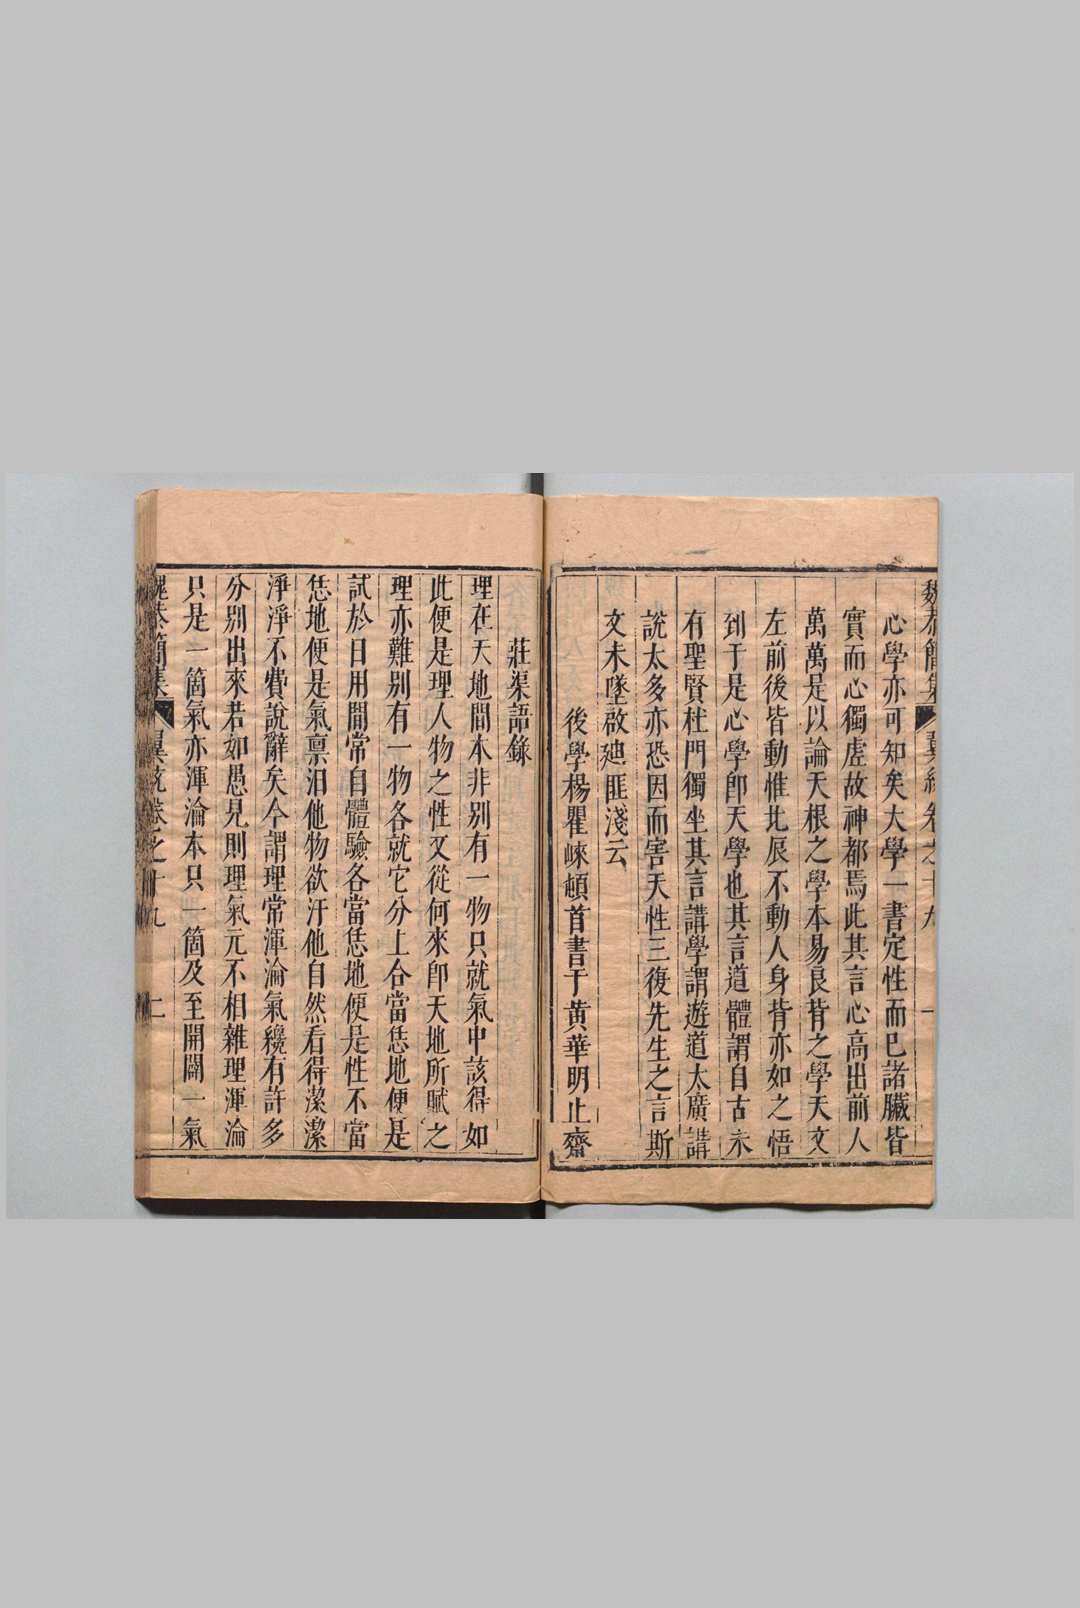 心學亦可知矣大學一書定性而已諸臟皆
實而心獨虛故神都焉此其言心高出前人
萬萬是以論天根之學本易艮背之學天文
左前後皆動惟北辰不動人身背亦如之悟
到于是心學卽天學也其言道體謂自古未
有聖賢杜門獨坐其言講學謂遊道太廣講
說太多亦恐因而害天性三復先生之言斯
文未墜啟廸匪淺云
後學楊瞿崍頓首書于黃華明止齋
莊渠語錄
理在天地間本非別有一物只就氣中該得如
此便是理人物之性又從何來卽天地所賦之
理亦難別有一物各就它分上合當恁地便是
試於日用間常自體驗各當恁地便是性不當
恁地便是氣禀汨他物欲汙他自然看得潔潔
淨淨不費說辭矣今謂理常渾淪氣纔有許多
分別出來若如愚見則理氣元不相雜理渾淪
只是一箇氣亦渾淪本只一箇及至開闢一氣
魏恭簡集 卷之十九 二